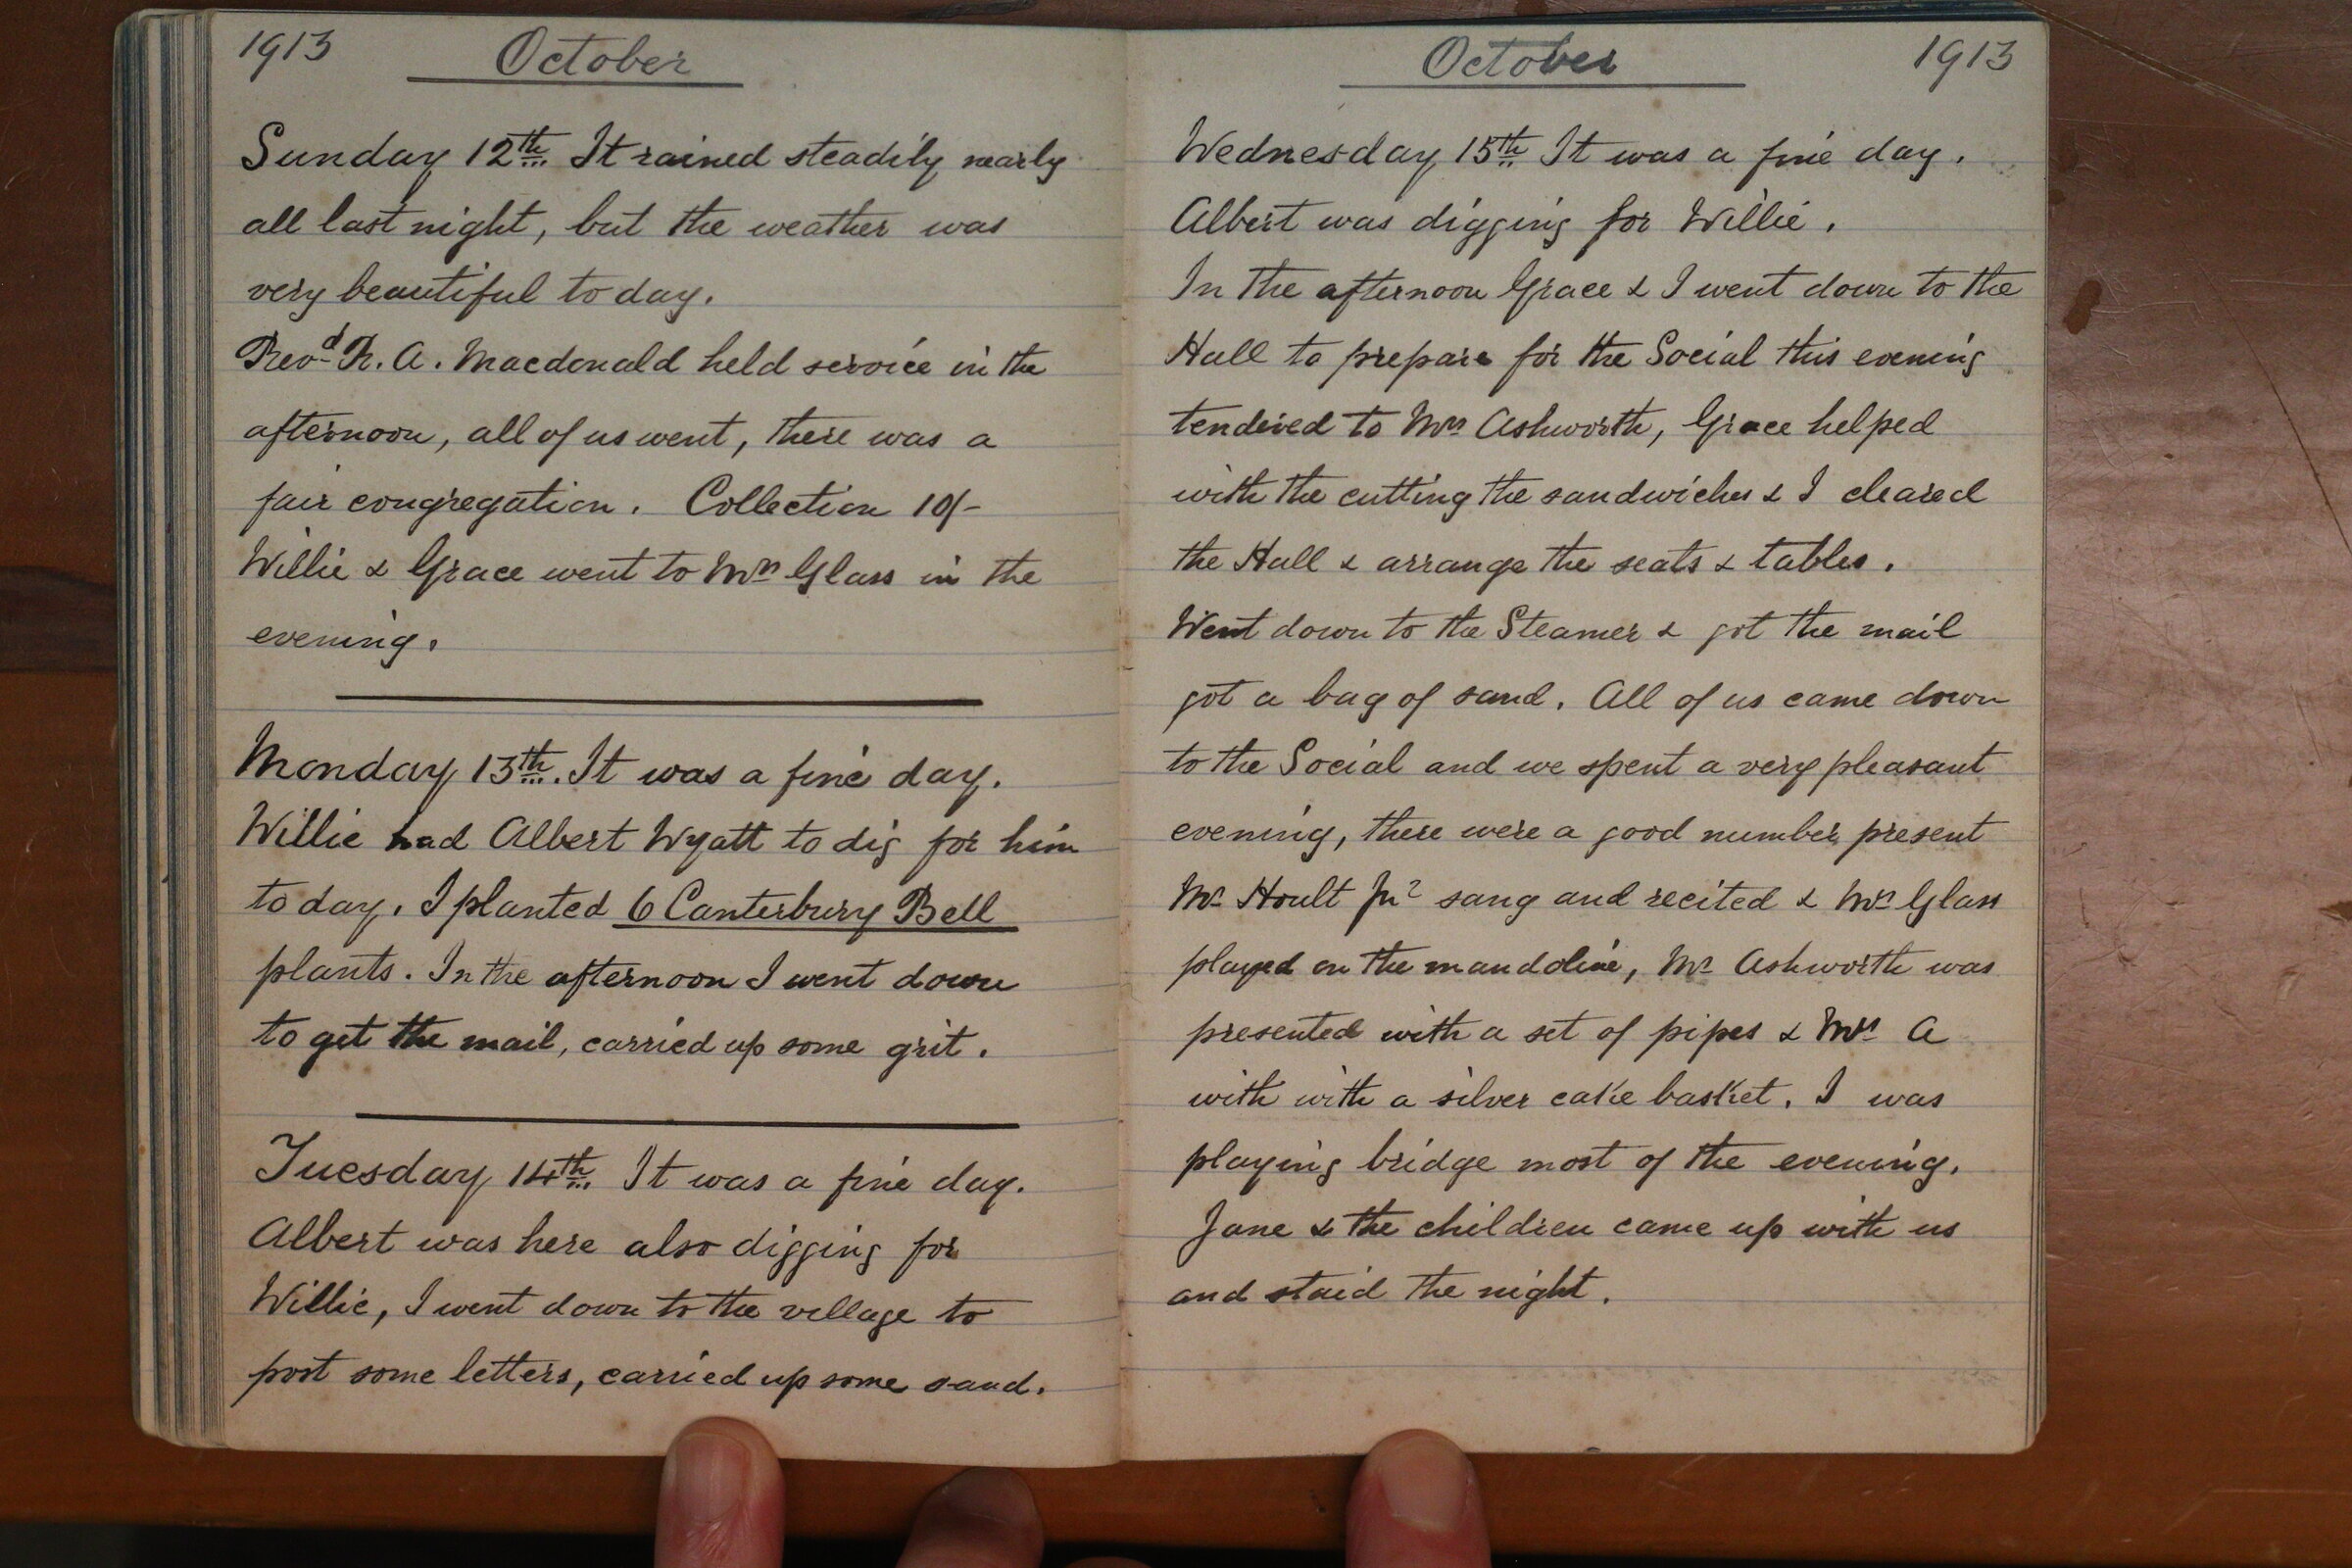 1913 October
Sunday 12th It rained steadily nearly
all last night, but the weather was
very beautiful to day.
Revd R. A. Macdonald held service in the
afternoon, all of us went, there was a
fair congregation. Collection 10/-
Willie & Grace went to Mrs Glass in the
evening.
Monday 13th. It was a fine day.
Willie had Albert Wyatt to dig for him
to day. I planted 6 Canterbury Bell
plants. In the afternoon I went down
to get the mail, carried up some grit.
Tuesday 14th It was a fine day.
Albert was here also digging for
Willie, I went down to the village to
post some letters, carried up some sand.
October 1913
Wednesday 15th It was a fine day.
Albert was digging for Willie.
In the afternoon Grace & I went down to the
Hall to prepare for the Social this evening
tendered to Mrs Ashworth, Grace helped
with the cutting the sandwiches & I cleared
the Hall & arrange the seats & tables.
Went down to the Steamer & got the mail
got a bag of sand. All of us came down
to the Social and we spent a very pleasant
evening, there were a good number present
Mr Hoult Jnr sang and recited & Mrs Glass
played on the mandoline, Mr Ashworth was
presented with a set of pipes & Mrs A
with with a silver cake basket. I was
playing bridge most of the evening.
Jane & the children came up with us
and staid the night.